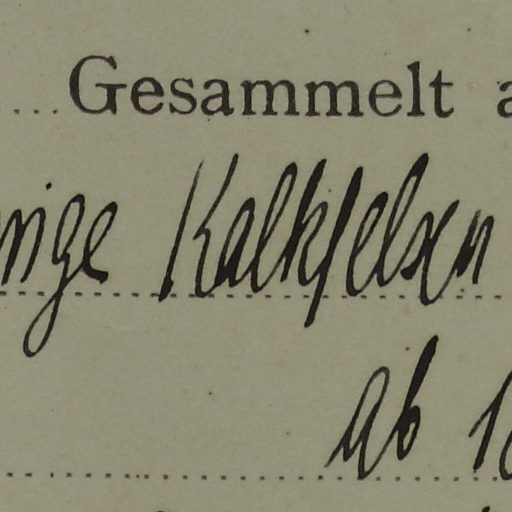 Gesammelt
Kalkfelsen
ab